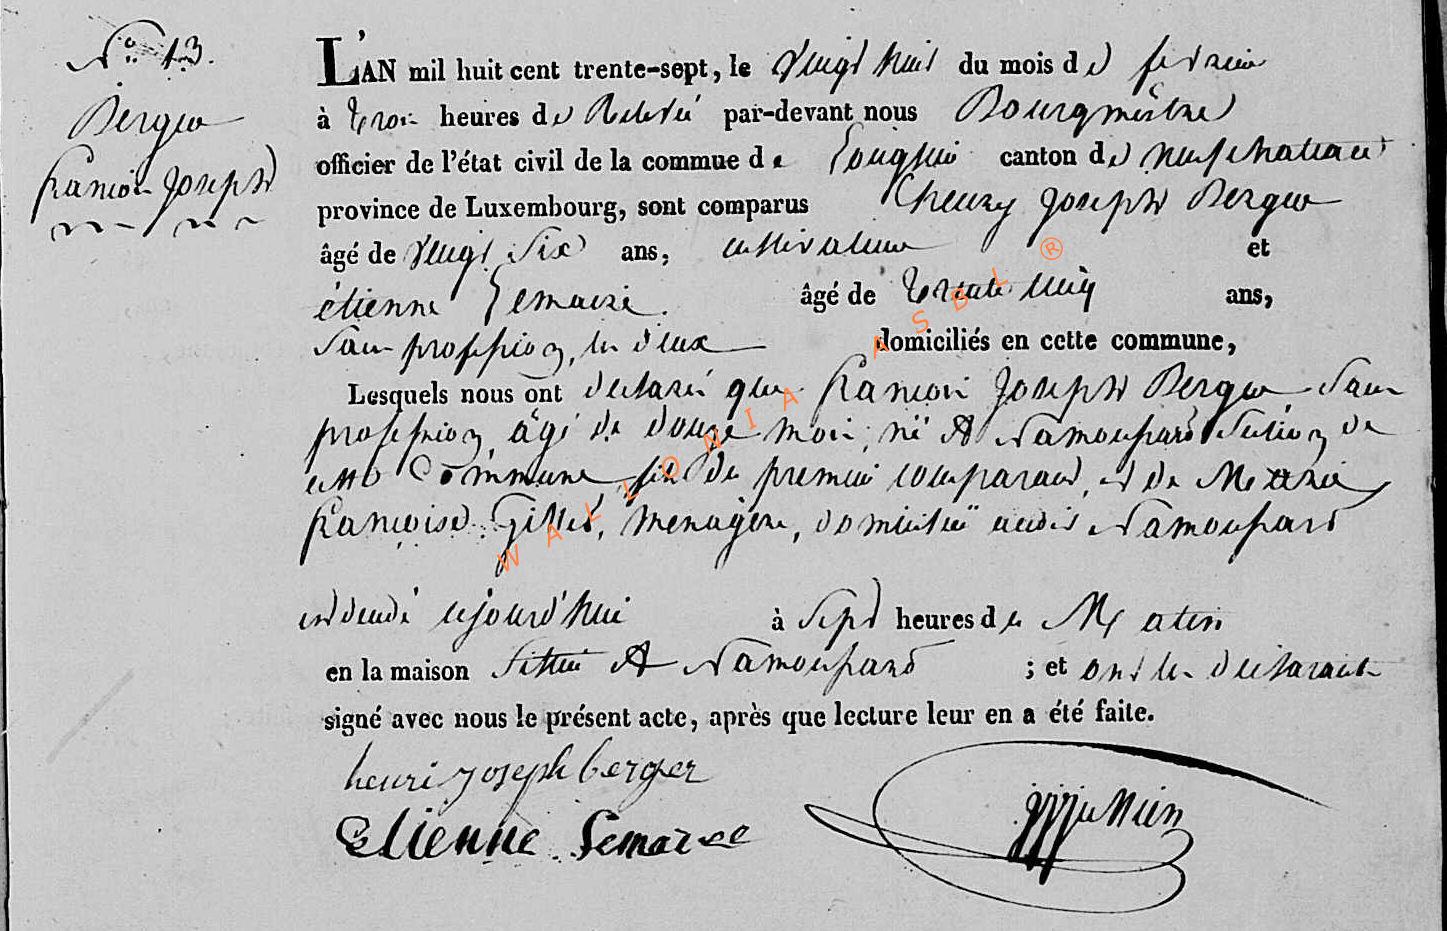 N° 13.
Berger
françois Joseph
L'AN mil huit cent trente-sept, le Vingt huit du mois de fevrier
à trois heures de Relevée par-devant nous Bourgmêstre
officier de l'état civil de la commue de Longlier canton de neufchateau
province de Luxembourg, sont comparus henry Joseph Berger
âgé de Vingt Six ans, cultivateur et
étienne Lemaire âgé de trente ans,
Sans profession, les deux domiciliés en cette commune,
Lesquels nous ont déclaré que françois Joseph Berger Sans
profession agé de douze mois, né A Namoussart Section de
cette Commune fils du premier comparant, et de Marie
françoise Gillet, menagère, domicilié audit Namoussart
est décedé aujourd'hui à Sept heures du Matin
en la maison Sittué A Namoussart ; et ont les declarants
signé avec nous le présent acte, après que lecture leur en a été faite.
henri joseph berger
Etienne Lemaire
WALLONIA ASBL ®